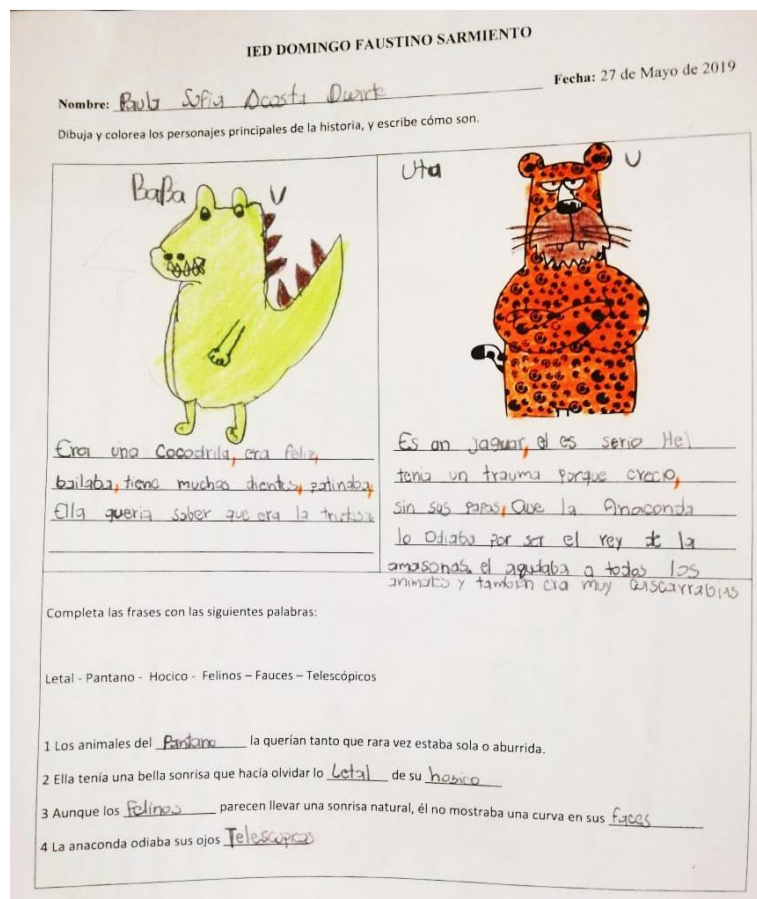 IED DOMINGO FAUSTINO SARMIENTO
Nombre: Paula Sofia Acosta Duarte Fecha: 27 de Mayo de 2019
Dibuja y colorea los personajes principales de la historia, y escribe cómo son.
BaBa
Era una Cocodrila, era feliz,
bailaba, tiene muchos dientes, patinaba,
Ella queria saber que era la tristesa
Uta
Es an jaguar, el es serio Hel
tenia un trauma porque crecio,
sin sus papas, Que la Anaconda
lo Odiaba por ser el rey de la
amasonas, el ayudaba a todos los
animales y tambien era muy cascarrabias
Completa las frases con las siguientes palabras:
Letal - Pantano - Hocico - Felinos – Fauces – Telescópicos
1 Los animales del Pantano la querían tanto que rara vez estaba sola o aburrida.
2 Ella tenía una bella sonrisa que hacía olvidar lo Letal de su hosico
3 Aunque los Felinos parecen llevar una sonrisa natural, él no mostraba una curva en sus faces
4 La anaconda odiaba sus ojos Telescopicos